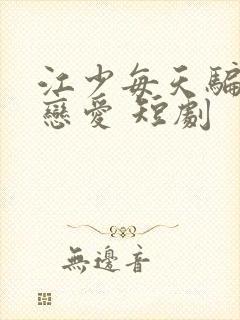 江少每天騙
戀愛 短劇
無邊音